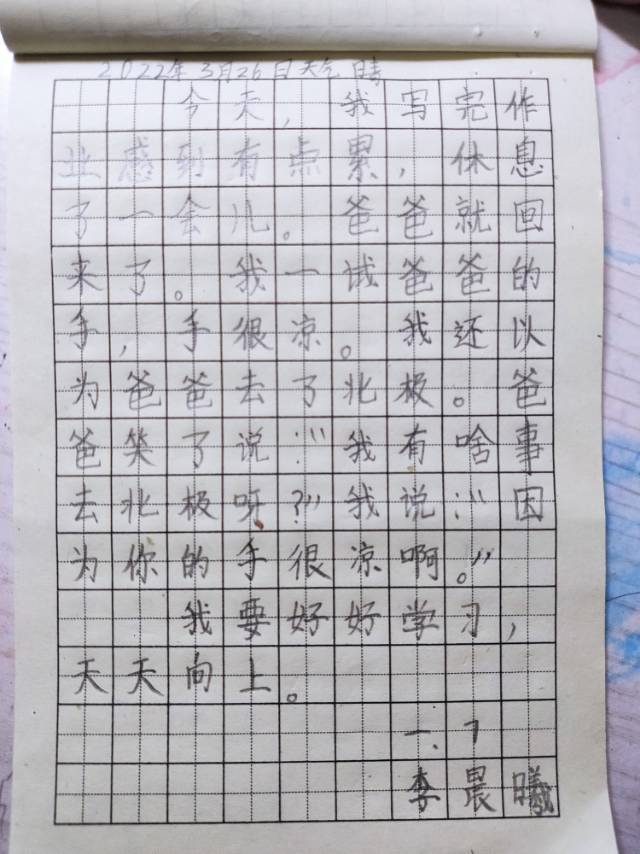 2022年3月26日天气 晴
今天，我写完作
业感到有点累，休息
了一会儿。爸爸就回
来了。我一试爸爸的
手，手很凉。我还以
为爸爸去了北极。爸
爸笑了说：“我有啥事
去北极呀？”我说：“因
为你的手很凉啊。”
我要好好学习，
天天向上。
一.7
李晨曦